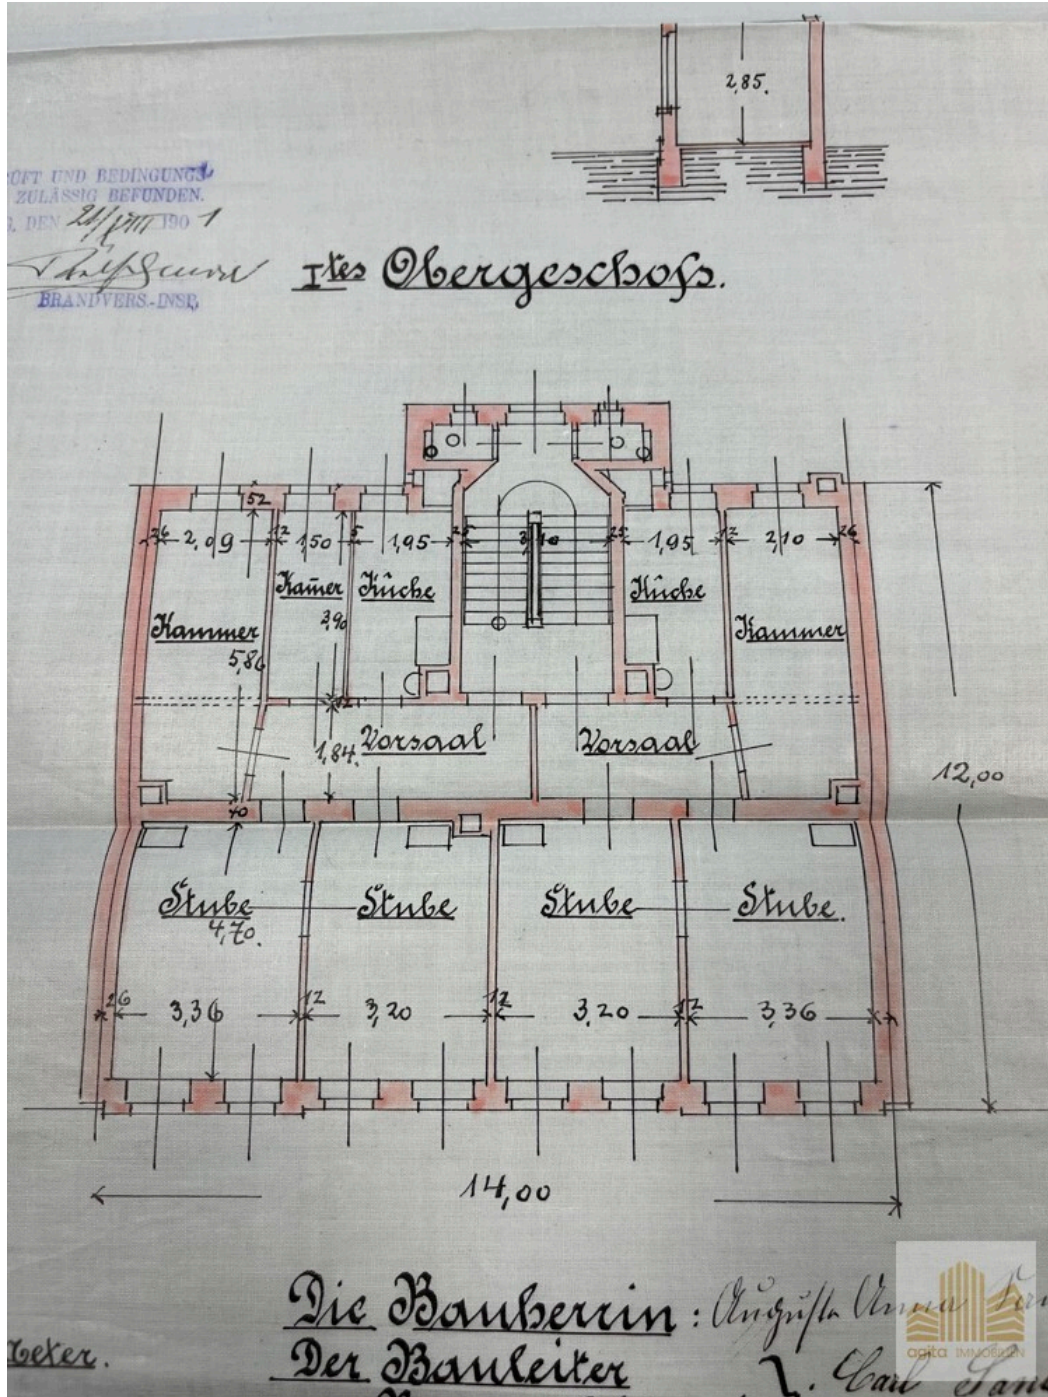 2,85.
ÜFT UND BEDINGUNGS
ZULÄSSIG BEFUNDEN.
DEN 21/VIII 1901
BRANDVERS.-INSP.
Ites Obergeschoß.
52
26 2,09 12 1,50 5 1,95 25 3,10 25 1,95 12 2,10 26
Kam̄er Küche Küche
3,90
Kammer Kammer
5,86
12
1,84. Vorsaal Vorsaal
12,00
40
Stube Stube Stube Stube.
4,70.
26 3,36 12 3,20 12 3,20 12 3,36
14,00
Die Bauherrin: Auguste Anna
Meter. Der Bauleiter
Carl
agita IMMOBILIEN